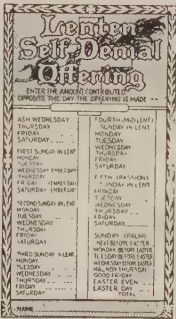 Lenten
Self-Denial
Offering
ENTER THE AMOUNT CONTRIBUTED
OPPOSITE THE DAY THE OFFERING IS MADE
ASH WEDNESDAY
THURSDAY
FRIDAY
SATURDAY
FIRST SUNDAY IN LENT
MONDAY
TUESDAY
WEDNESDAY (EMBER DAY)
THURSDAY
FRIDAY (EMBER DAY)
SATURDAY (EMBER DAY)
SECOND SUNDAY IN LENT
MONDAY
TUESDAY
WEDNESDAY
THURSDAY
FRIDAY
SATURDAY
THIRD SUNDAY IN LENT
MONDAY
TUESDAY
WEDNESDAY
THURSDAY
FRIDAY
SATURDAY
FOURTH (MID LENT)
SUNDAY IN LENT
MONDAY
TUESDAY
WEDNESDAY
THURSDAY
FRIDAY
SATURDAY
FIFTH (PASSION)
SUNDAY IN LENT
MONDAY
TUESDAY
WEDNESDAY
THURSDAY
FRIDAY
SATURDAY
SUNDAY (PALM)
NEXT BEFORE EASTER
MONDAY BEFORE EASTER
TUESDAY BEFORE EASTER
WEDNESDAY BEFORE EASTER
MAUNDY THURSDAY
GOOD FRIDAY
EASTER EVEN
EASTER DAY
TOTAL
NAME